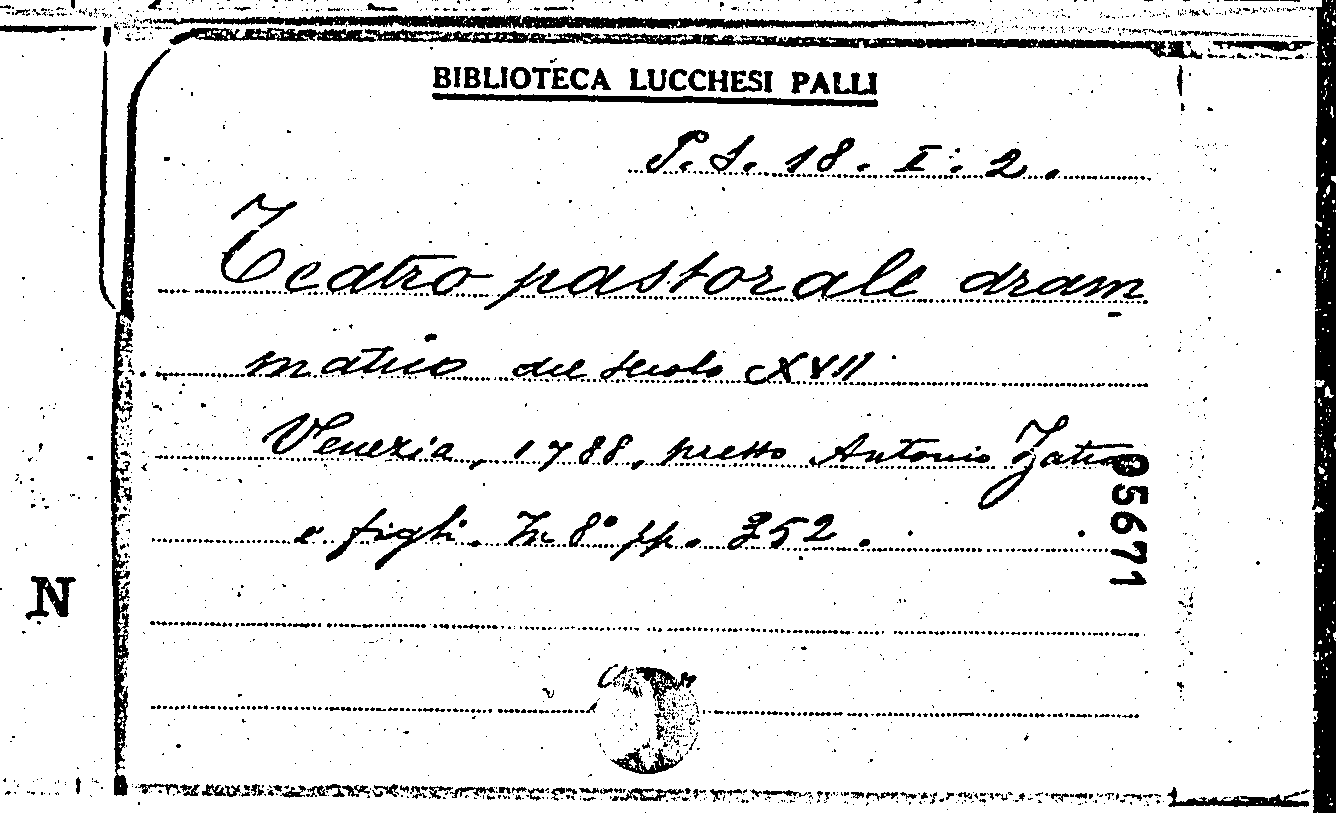 BIBLIOTECA LUCCHESI PALLI
P.S. 18. I. 2.
Teatro pastorale dram
matico del secolo XVII
Venezia, 1788, presso Antonio Zatta
e figli. In 8° pp. 352.
05671
N